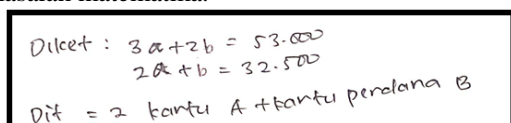 Diket : 3a + 2b = 53.000
2a + b = 32.500
Dit = 2 kartu A + kartu perdana B